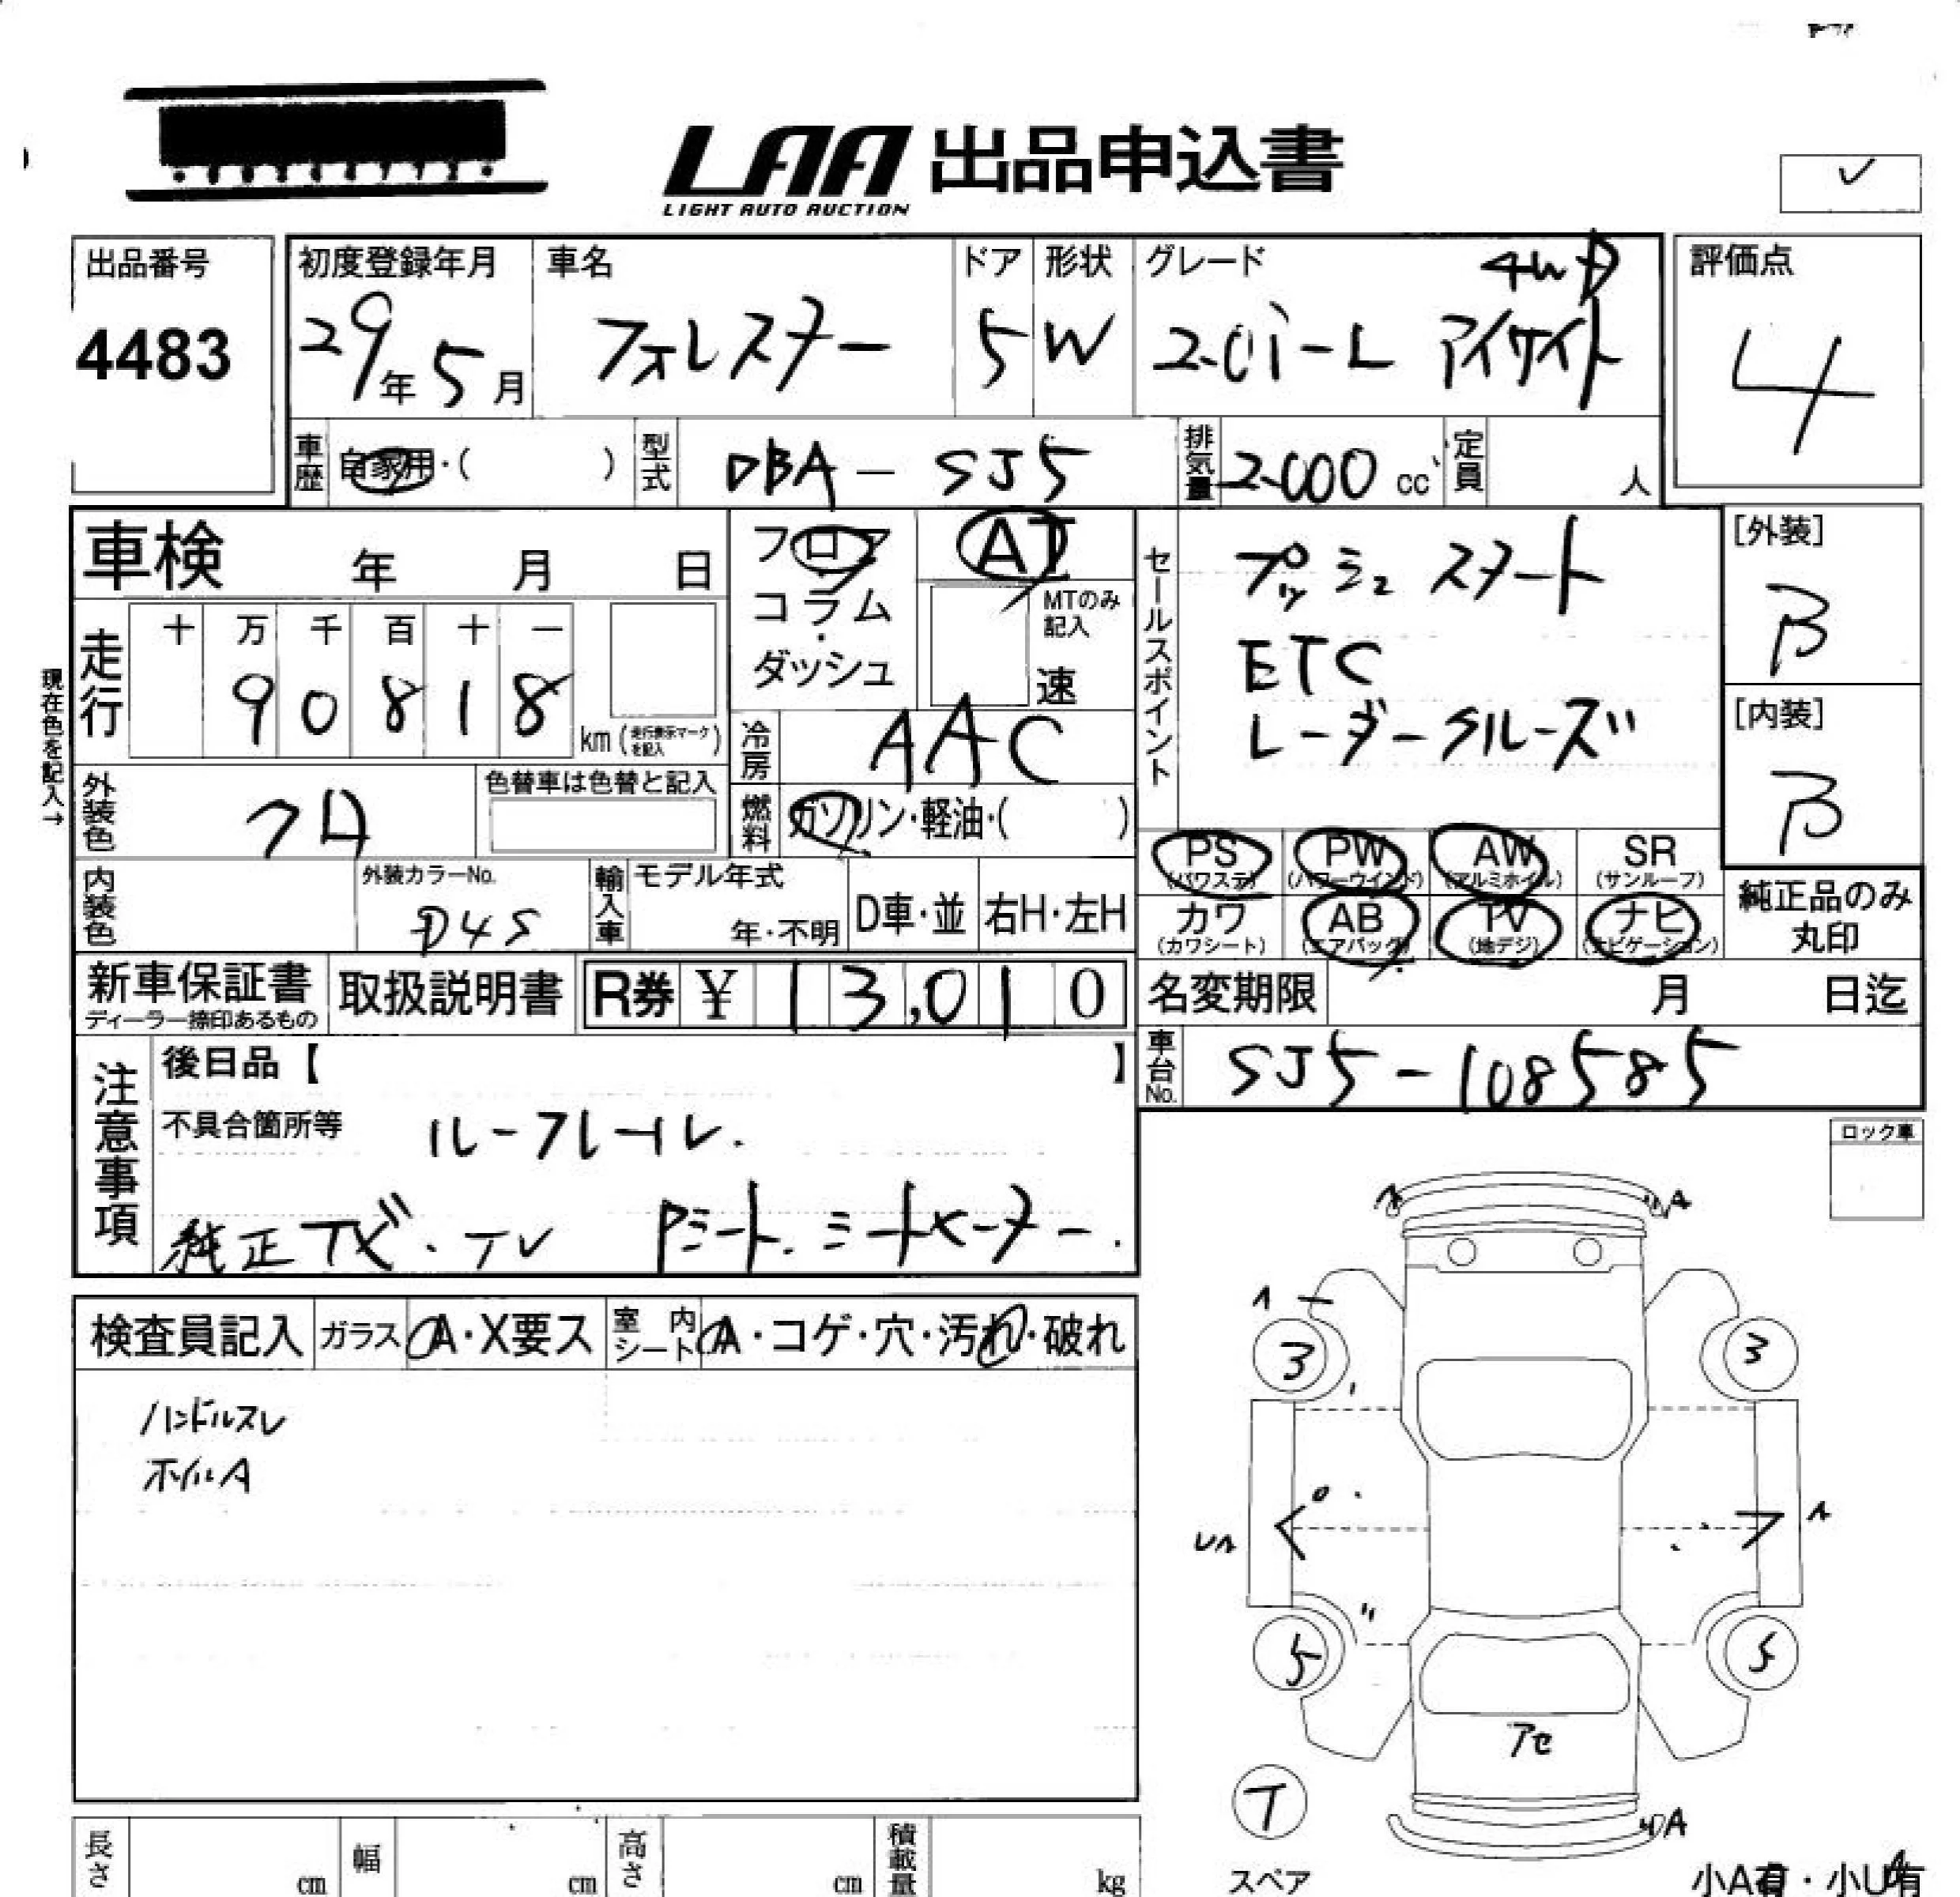 LAA 出品申込書
LIGHT AUTO AUCTION
出品番号
4483
初度登録年月
29年5月
車名
フォレスター
ドア
5
形状
W
グレード
4WD
2.0i-L アイサイト
評価点
4
車歴
自家用・( )
型式
DBA-SJ5
排気量
2000 cc
定員
人
車検 年 月 日
フロア
コラム
・
ダッシュ
AT
MTのみ
記入
速
セールスポイント
プッシュスタート
ETC
レーダークルーズ
[外装]
B
[内装]
B
現在色を記入→
走行
十 万 千 百 十 一
9 0 8 1 8
km (走行表示マークを記入)
冷房
AAC
外装色
クロ
色替車は色替と記入
燃料
ガソリン・軽油・( )
PS
(パワステ)
PW
(パワーウインド)
AW
(アルミホイル)
SR
(サンルーフ)
カワ
(カワシート)
AB
(エアバッグ)
TV
(地デジ)
ナビ
(ナビゲーション)
純正品のみ
丸印
内装色
外装カラーNo.
D4S
輸入車
モデル年式
年・不明
D車・並
右H・左H
新車保証書
ディーラー捺印あるもの
取扱説明書
R券 ¥ 13,010
名変期限 月 日迄
車台No.
SJ5-108585
注意事項
後日品【 】
不具合箇所等
ルーフレール.
純正ナビ・TV Pシート.シートヒーター.
ロック車
検査員記入
ガラス
A・X要ス
室内シート
A・コゲ・穴・汚れ・破れ
ハンドルスレ
ホイルA
A
A
3
3
UA
A
5
5
アセ
T
スペア
A
長さ
cm
幅
cm
高さ
cm
積載量
kg
小A有・小U有